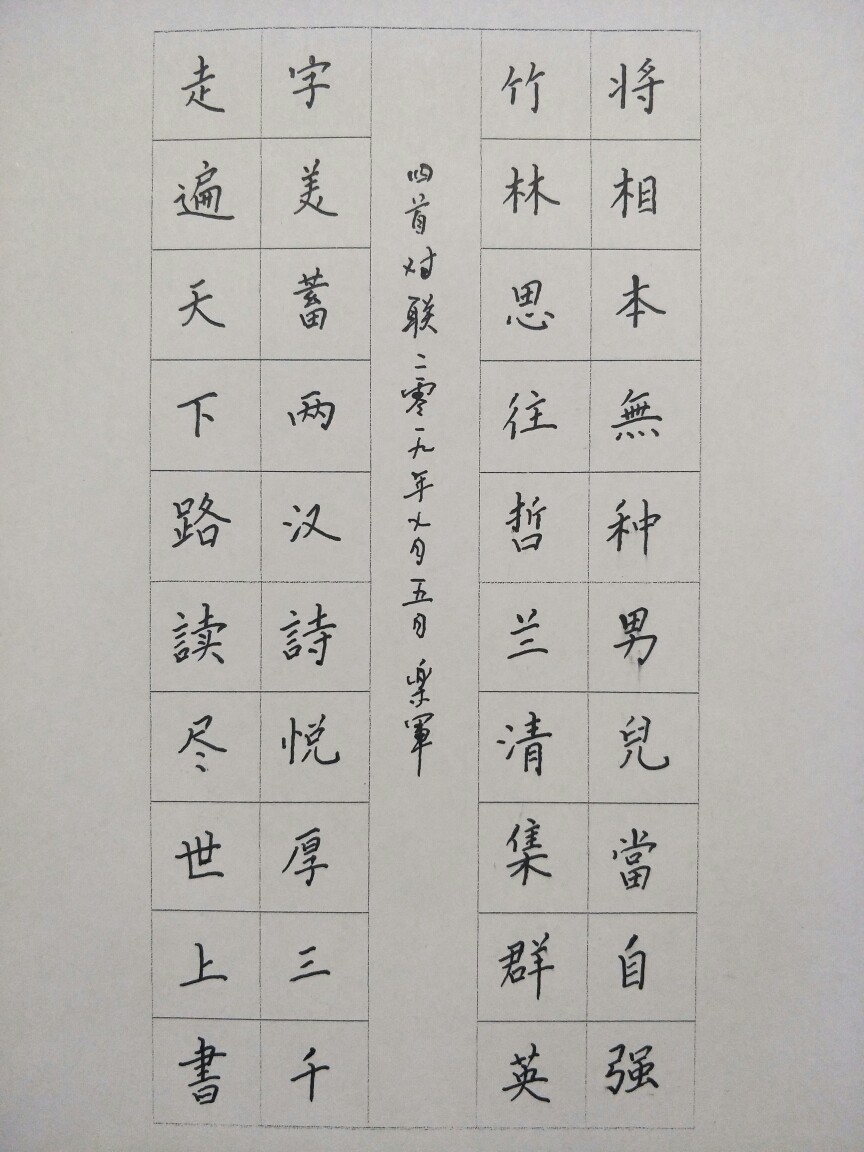 将相本無种男兒當自强
竹林思往哲兰清集群英
四首对联二零一九年七月五日 樂軍
字美蓄两汉詩悦厚三千
走遍天下路読尽世上書